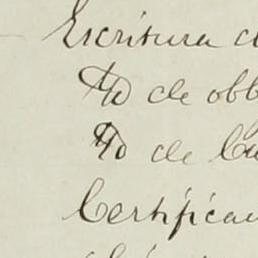 Escritura d
Yd de obl
Yd de Cu
Certificac